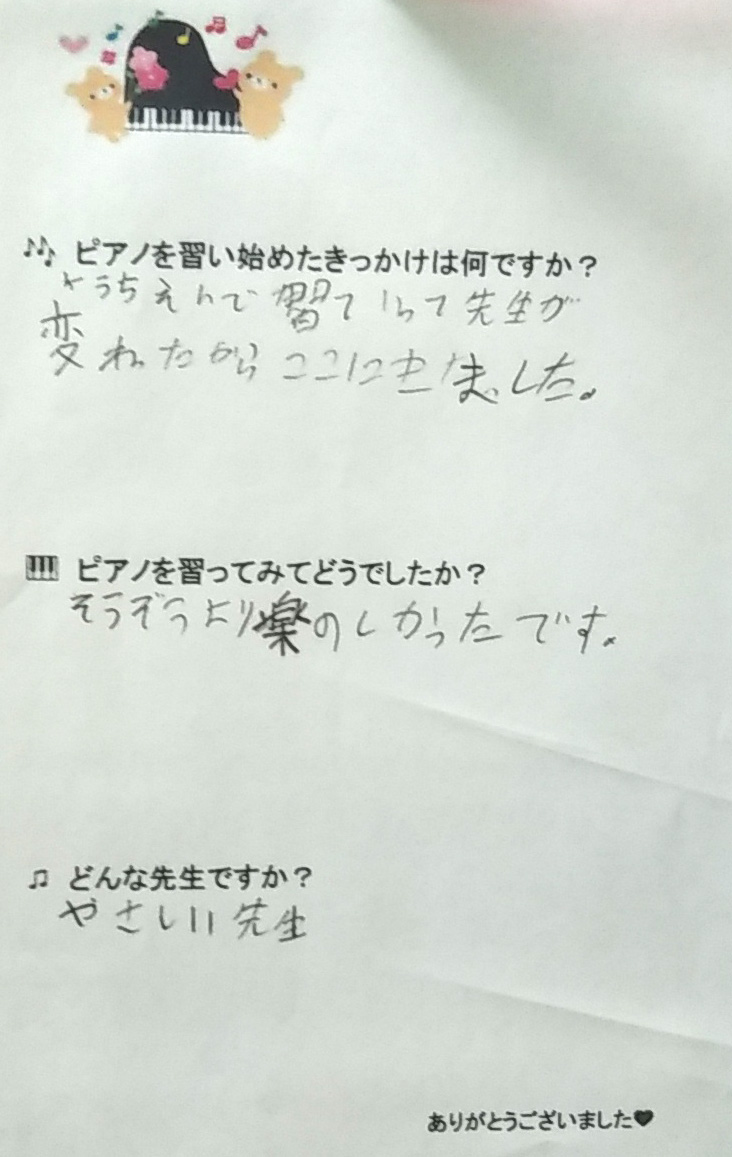 ピアノを習い始めたきっかけは何ですか？
ようちえんで習ていって先生が
変れたからここにきました。
ピアノを習ってみてどうでしたか？
そうぞうより楽のしかったです。
どんな先生ですか？
やさしい先生
ありがとうございました♥